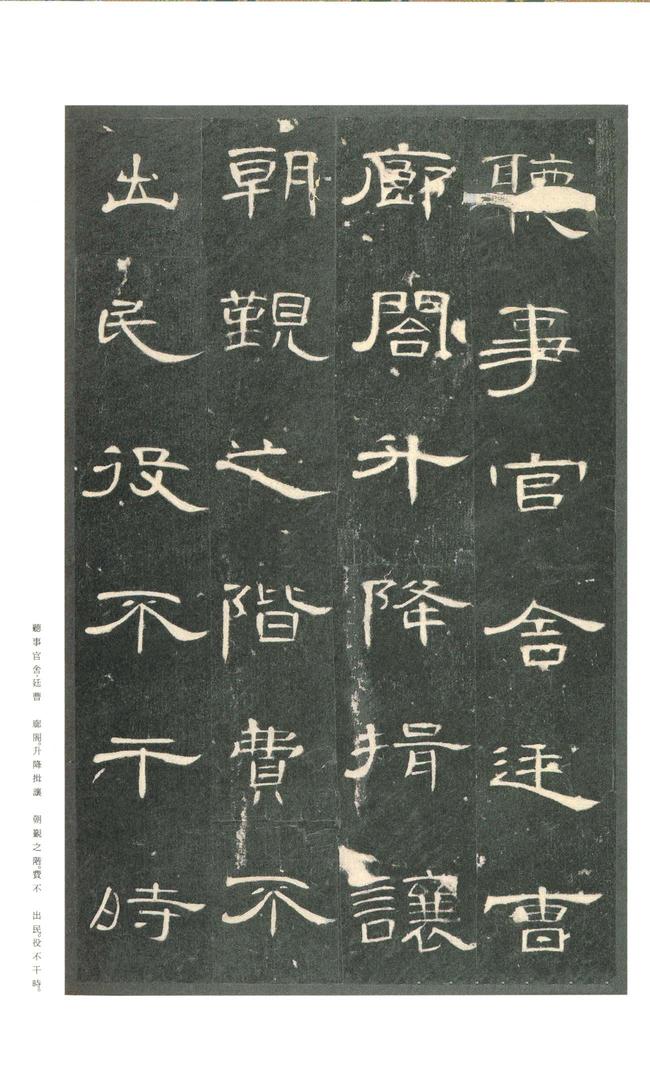 聽事官舍廷曹
廊閣升降揖讓
朝覲之階費不
出民役不干時
聽事官舍、廷曹 廊閣。升降揖讓 朝覲之階。費不 出民。役不干時。